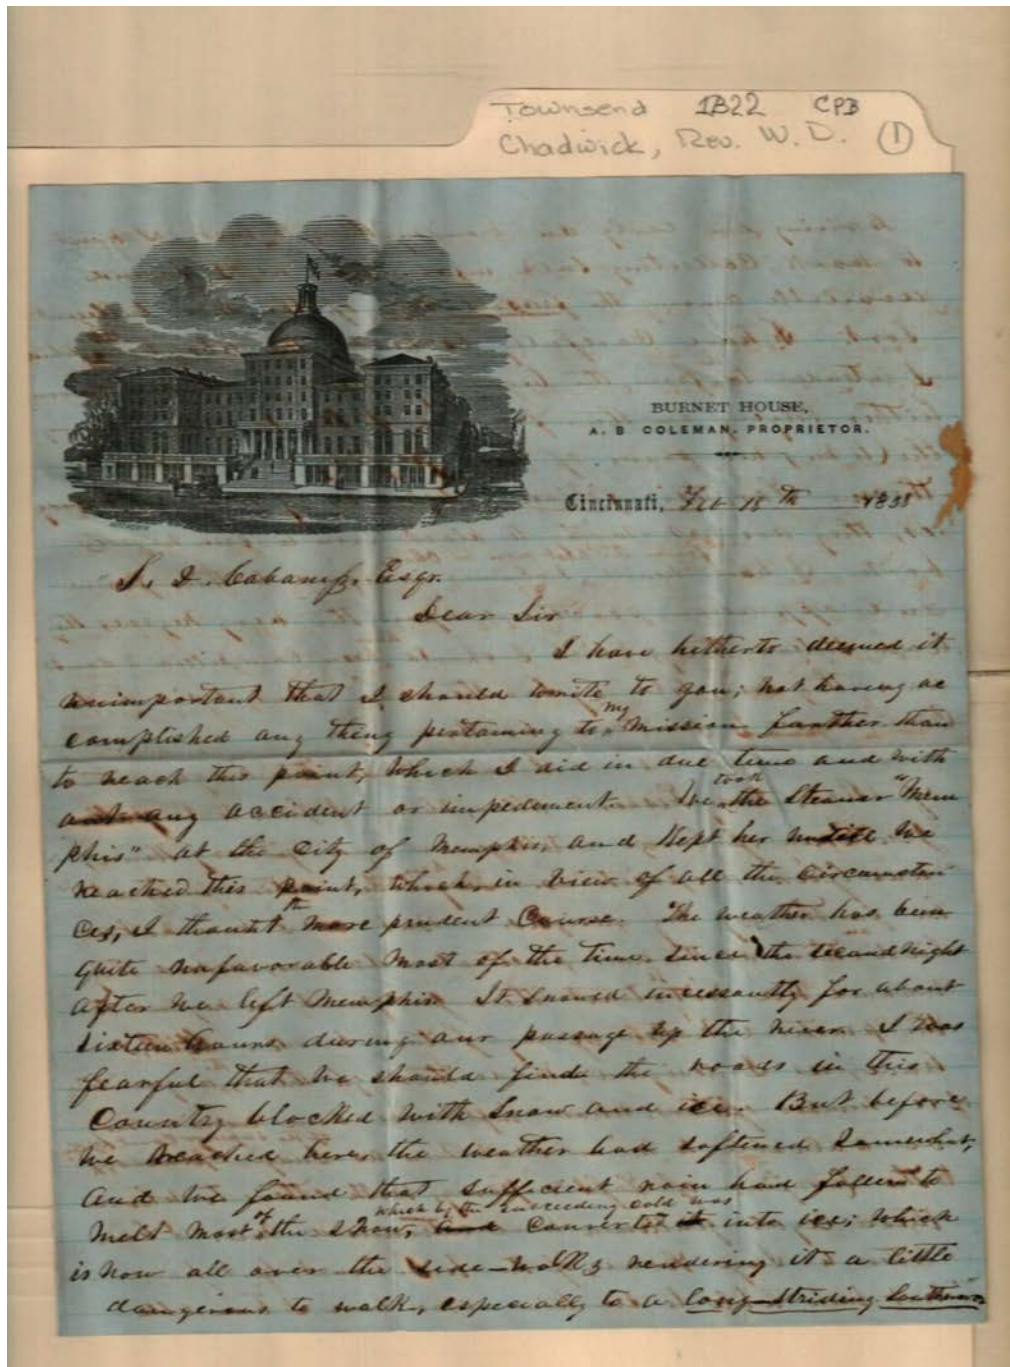 Townsend 1B22 CPB
Chadwick, Rev. W. D. 1
BURNET HOUSE,
A. B. COLEMAN. PROPRIETOR.
Cincinnati, Feb 18th 1858
S. D. Cabaniss Esqr.
Dear Sir
I have hitherto deemed it
unimportant that I should write to you; not having ac
complished any thing pertaining to my mission farther than
to reach this point, which I did in due time and with
out any accident or impediment. We took the Steamer "Mem
phis" at the City of Memphis, and kept her untill we
reached this point, which, in view of all the circumstan
ces, I thought the more prudent Course. The weather has been
quite unfavorable most of the time since the second night
after we left Memphis. It snowed incessantly for about
sixteen hours during our passage up the river. I was
fearful that we should find the roads in this
Country blocked with snow and ice. But before
we reached here, the weather had softened somewhat,
and we found that sufficient rain had fallen to
melt most of the snow, and which by the succeeding cold was converted it into ice; which
is now all over the side-walks rendering it a little
dangerous to walk, especially to a long-striding Southron